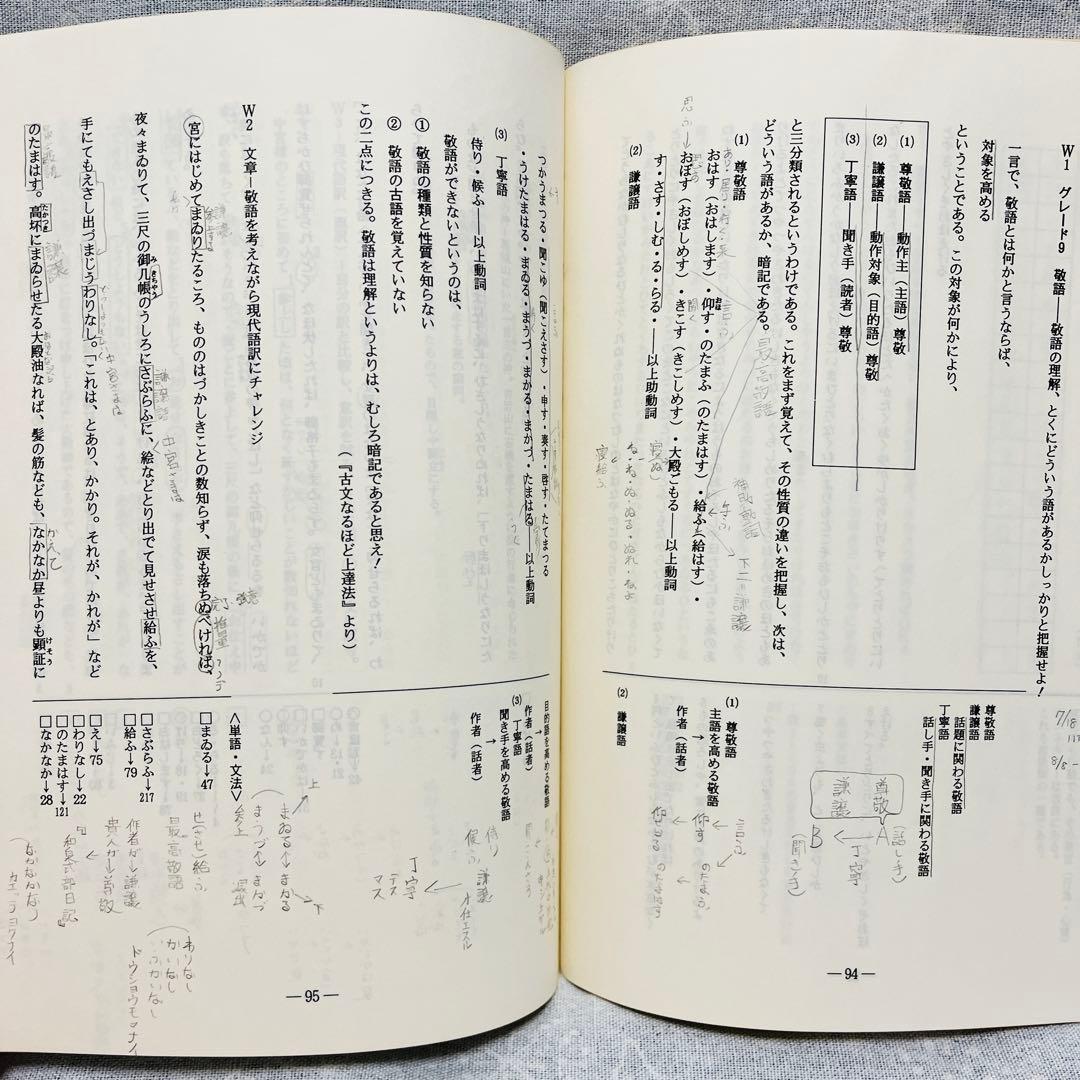 W1 グレード9 敬語――敬語の理解、とくにどういう語があるかしっかりと把握せよ！
一言で、敬語とは何かと言うならば、
対象を高める
ということである。この対象が何かにより、
(1) 尊敬語 動作主（主語）尊敬
(2) 謙譲語 動作対象（目的語）尊敬
(3) 丁寧語――聞き手（読者）尊敬
と三分類されるというわけである。これをまず覚えて、その性質の違いを把握し、次は、
どういう語があるか、暗記である。
最高敬語
(1) 尊敬語
おはす（おはします）・仰す・のたまふ（のたまはす）・給ふ（給はす）・
おぼす（おぼしめす）・きこす（きこしめす）・大殿ごもる――以上動詞
す・さす・しむ・る・らる――以上助動詞
(2) 謙譲語
思ふ
言ふ
補助動詞
下二 謙譲
寝ぬ
な・ね・ぬ・ぬる・ぬれ・ねよ
寝給ふ
尊敬語
謙譲語
話題に関わる敬語
丁寧語
話し手・聞き手に関わる敬語
7/18
8/8
尊敬
謙譲
A（話し手）
丁寧
B（聞き手）
(1) 尊敬語
主語を高める敬語
↑
作者（話者）
言ふ
仰す のたまふ
仰せる のたまはす
(2) 謙譲語
―94―
つかうまつる・聞こゆ（聞こえさす）・申す・奏す・啓す・たてまつる
・うけたまはる・まゐる・まうづ・まかる・まかづ・たまはる――以上動詞
(3) 丁寧語
侍り・候ふ――以上動詞
敬語ができないというのは、
① 敬語の種類と性質を知らない
② 敬語の古語を覚えていない
この二点につきる。敬語は理解というよりは、むしろ暗記であると思え！
（『古文なるほど上達法』より）
W2 文章―敬語を考えながら現代語訳にチャレンジ
宮にはじめてまゐりたるころ、もののはづかしきことの数知らず、涙も落ちぬべければ、
夜々まゐりて、三尺の御几帳のうしろにさぶらふに、絵などとり出でて見せさせ給ふを、
手にてもえさし出づまじうわりなし。「これは、とあり、かかり。それが、かれが」など
のたまはす。高坏にまゐらせたる大殿油なれば、髪の筋なども、なかなか昼よりも顕証に
みきちやう
たかつき
けそう
推量
謙譲語
中宮さまは
中宮さまは
かえて
目的語を高める敬語
↑
作者（話者）
(3) 丁寧語
聞き手を高める敬語
↑
作者（話者）
侍り
候ふ
謙譲
オ仕エスル
丁寧
デス
マス
＜単語・文法＞
□まゐる→47
□さぶらふ→217
□給ふ→79
□え→75
□わりなし→22
□のたまはす→121
□なかなか→28
上
まゐる↔まかる
（まうづ↔まかづ
下
参上
退出
せ（させ）給ふ
最高敬語
作者が→謙譲
貴人が→尊敬
『和泉式部日記』
（なかなかなり）
わりなし
かいなし
ドウショウモナイ
―95―